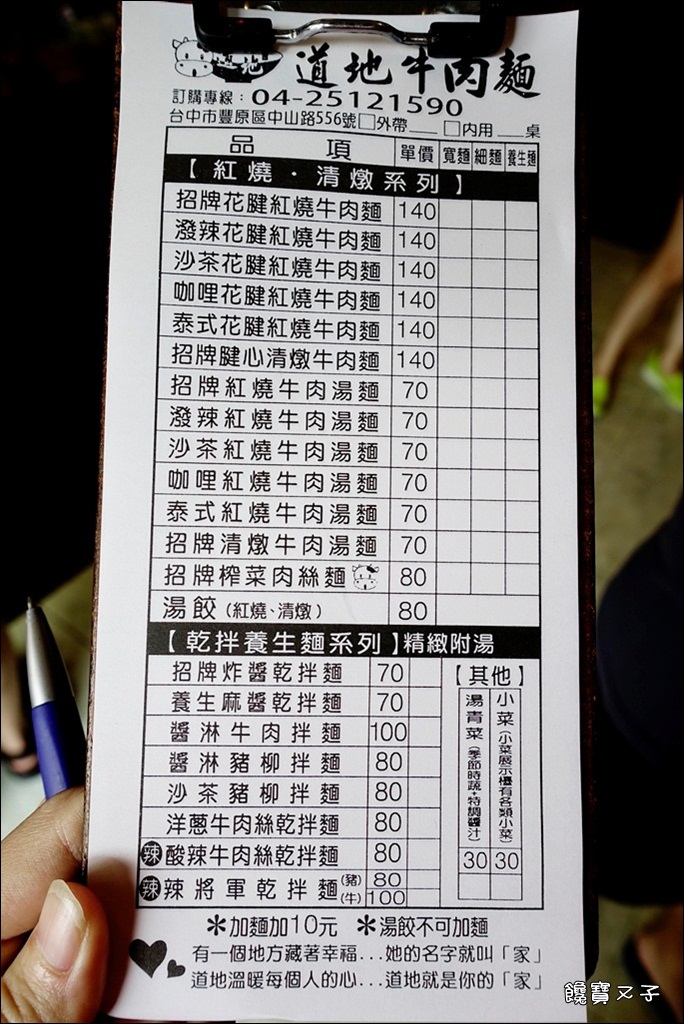 道地牛肉麵
訂購專線：04-25121590
台中市豐原區中山路556號 □外帶 ___ □內用 ___桌
品項 單價 寬麵 細麵 養生麵
【紅燒・清燉系列】
招牌花腱紅燒牛肉麵 140
潑辣花腱紅燒牛肉麵 140
沙茶花腱紅燒牛肉麵 140
咖哩花腱紅燒牛肉麵 140
泰式花腱紅燒牛肉麵 140
招牌腱心清燉牛肉麵 140
招牌紅燒牛肉湯麵 70
潑辣紅燒牛肉湯麵 70
沙茶紅燒牛肉湯麵 70
咖哩紅燒牛肉湯麵 70
泰式紅燒牛肉湯麵 70
招牌清燉牛肉湯麵 70
招牌榨菜肉絲麵 80
湯餃（紅燒、清燉） 80
【乾拌養生麵系列】精緻附湯
招牌炸醬乾拌麵 70
養生麻醬乾拌麵 70
醬淋牛肉拌麵 100
醬淋豬柳拌麵 80
沙茶豬柳拌麵 80
洋蔥牛肉絲乾拌麵 80
辣 酸辣牛肉絲乾拌麵 80
辣 辣將軍乾拌麵 (豬) 80
(牛) 100
【其他】
湯青菜（季節時蔬+特調醬汁） 30
小菜（小菜展示櫃有各類小菜） 30
＊加麵加10元 ＊湯餃不可加麵
有一個地方藏著幸福...她的名字就叫「家」
道地溫暖每個人的心...道地就是你的「家」
饞寶ㄡ子